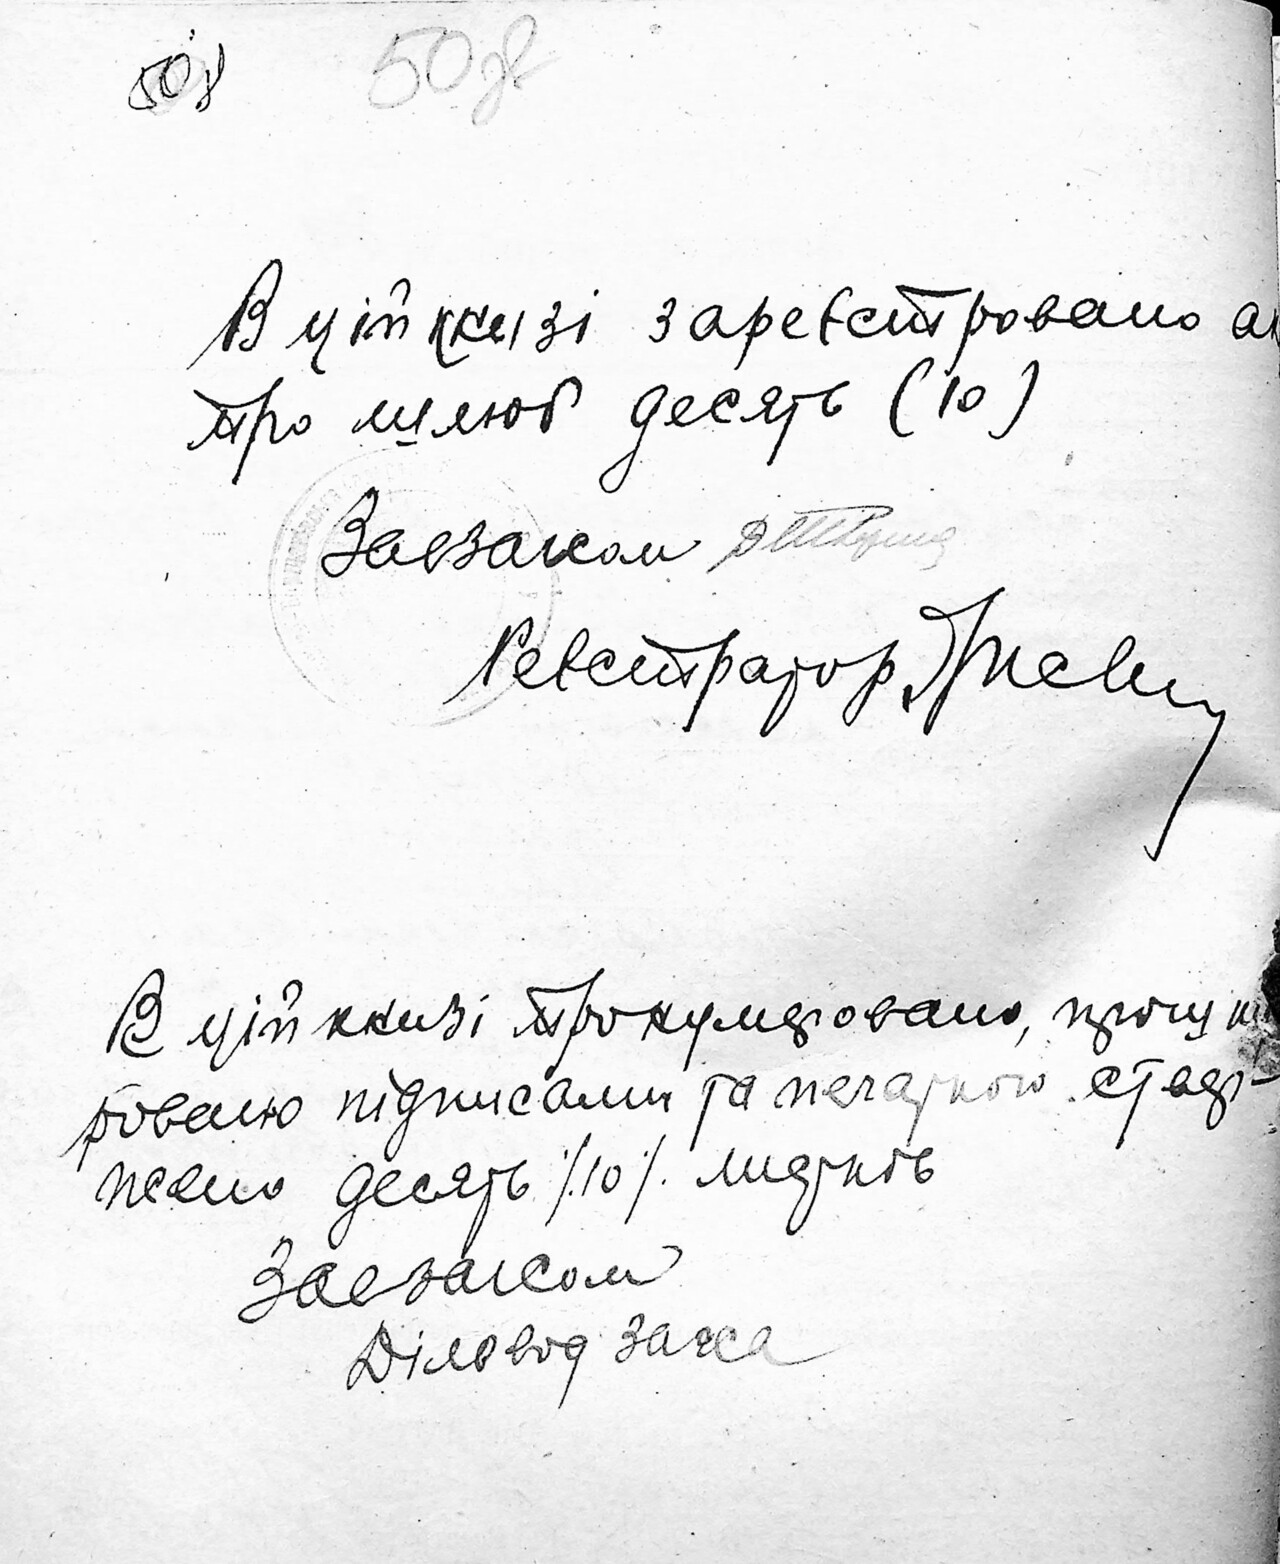 50
50 зв
В цій книзі зареєстровано ак
про шлюб десять (10)
Завзагсом
Реєстратор
В цій книзі пронумеровано, прошну
ровано підписами та печаткою стверд-
жено десять /10/. листків
Завзагсом
Діловод загса